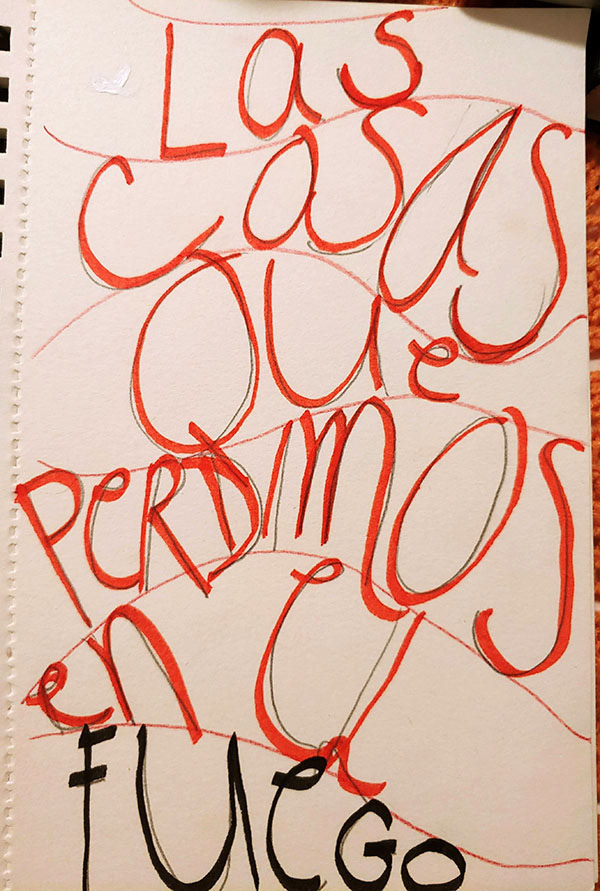 Las
Casas
Que
PeRDImOS
en el
FUeGO